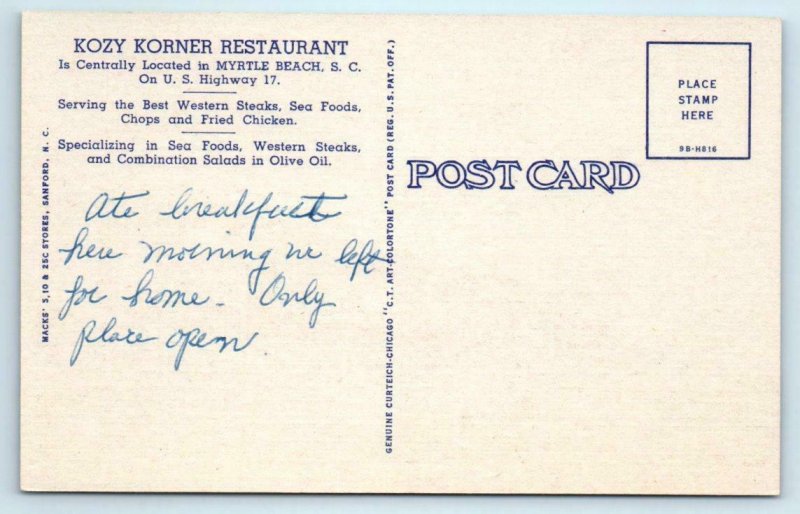 KOZY KORNER RESTAURANT
Is Centrally Located in MYRTLE BEACH, S. C.
On U. S. Highway 17.
Serving the Best Western Steaks, Sea Foods,
Chops and Fried Chicken.
Specializing in Sea Foods, Western Steaks,
and Combination Salads in Olive Oil.
Ate breakfast
here morning we left
for home - Only
place open.
MACKS' 5, 10 & 25C STORES, SANFORD, N. C.
GENUINE CURTEICH-CHICAGO "C.T. ART-COLORTONE" POST CARD (REG. U.S. PAT. OFF.)
POST CARD
PLACE
STAMP
HERE
9B-H816